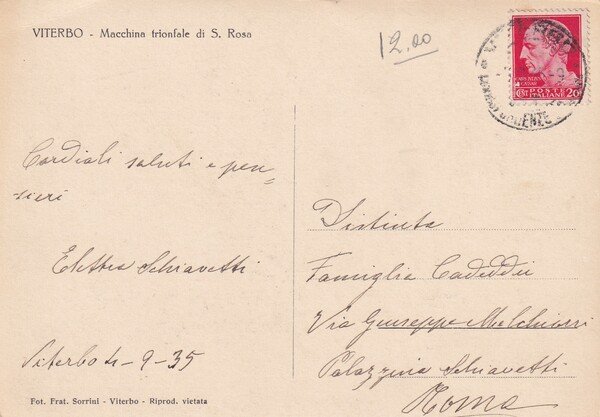 VITERBO - Macchina trionfale di S. Rosa
12.00
POSTE
ITALIANE
Cordiali saluti e pen=
sieri
Elettra Schiavetti
Viterbo 4-9-35
Fot. Frat. Sorrini - Viterbo - Riprod. vietata
Distinta
Famiglia Cadeddu
Via Giuseppe Melchiorri
Palazzina Schiavetti
Roma